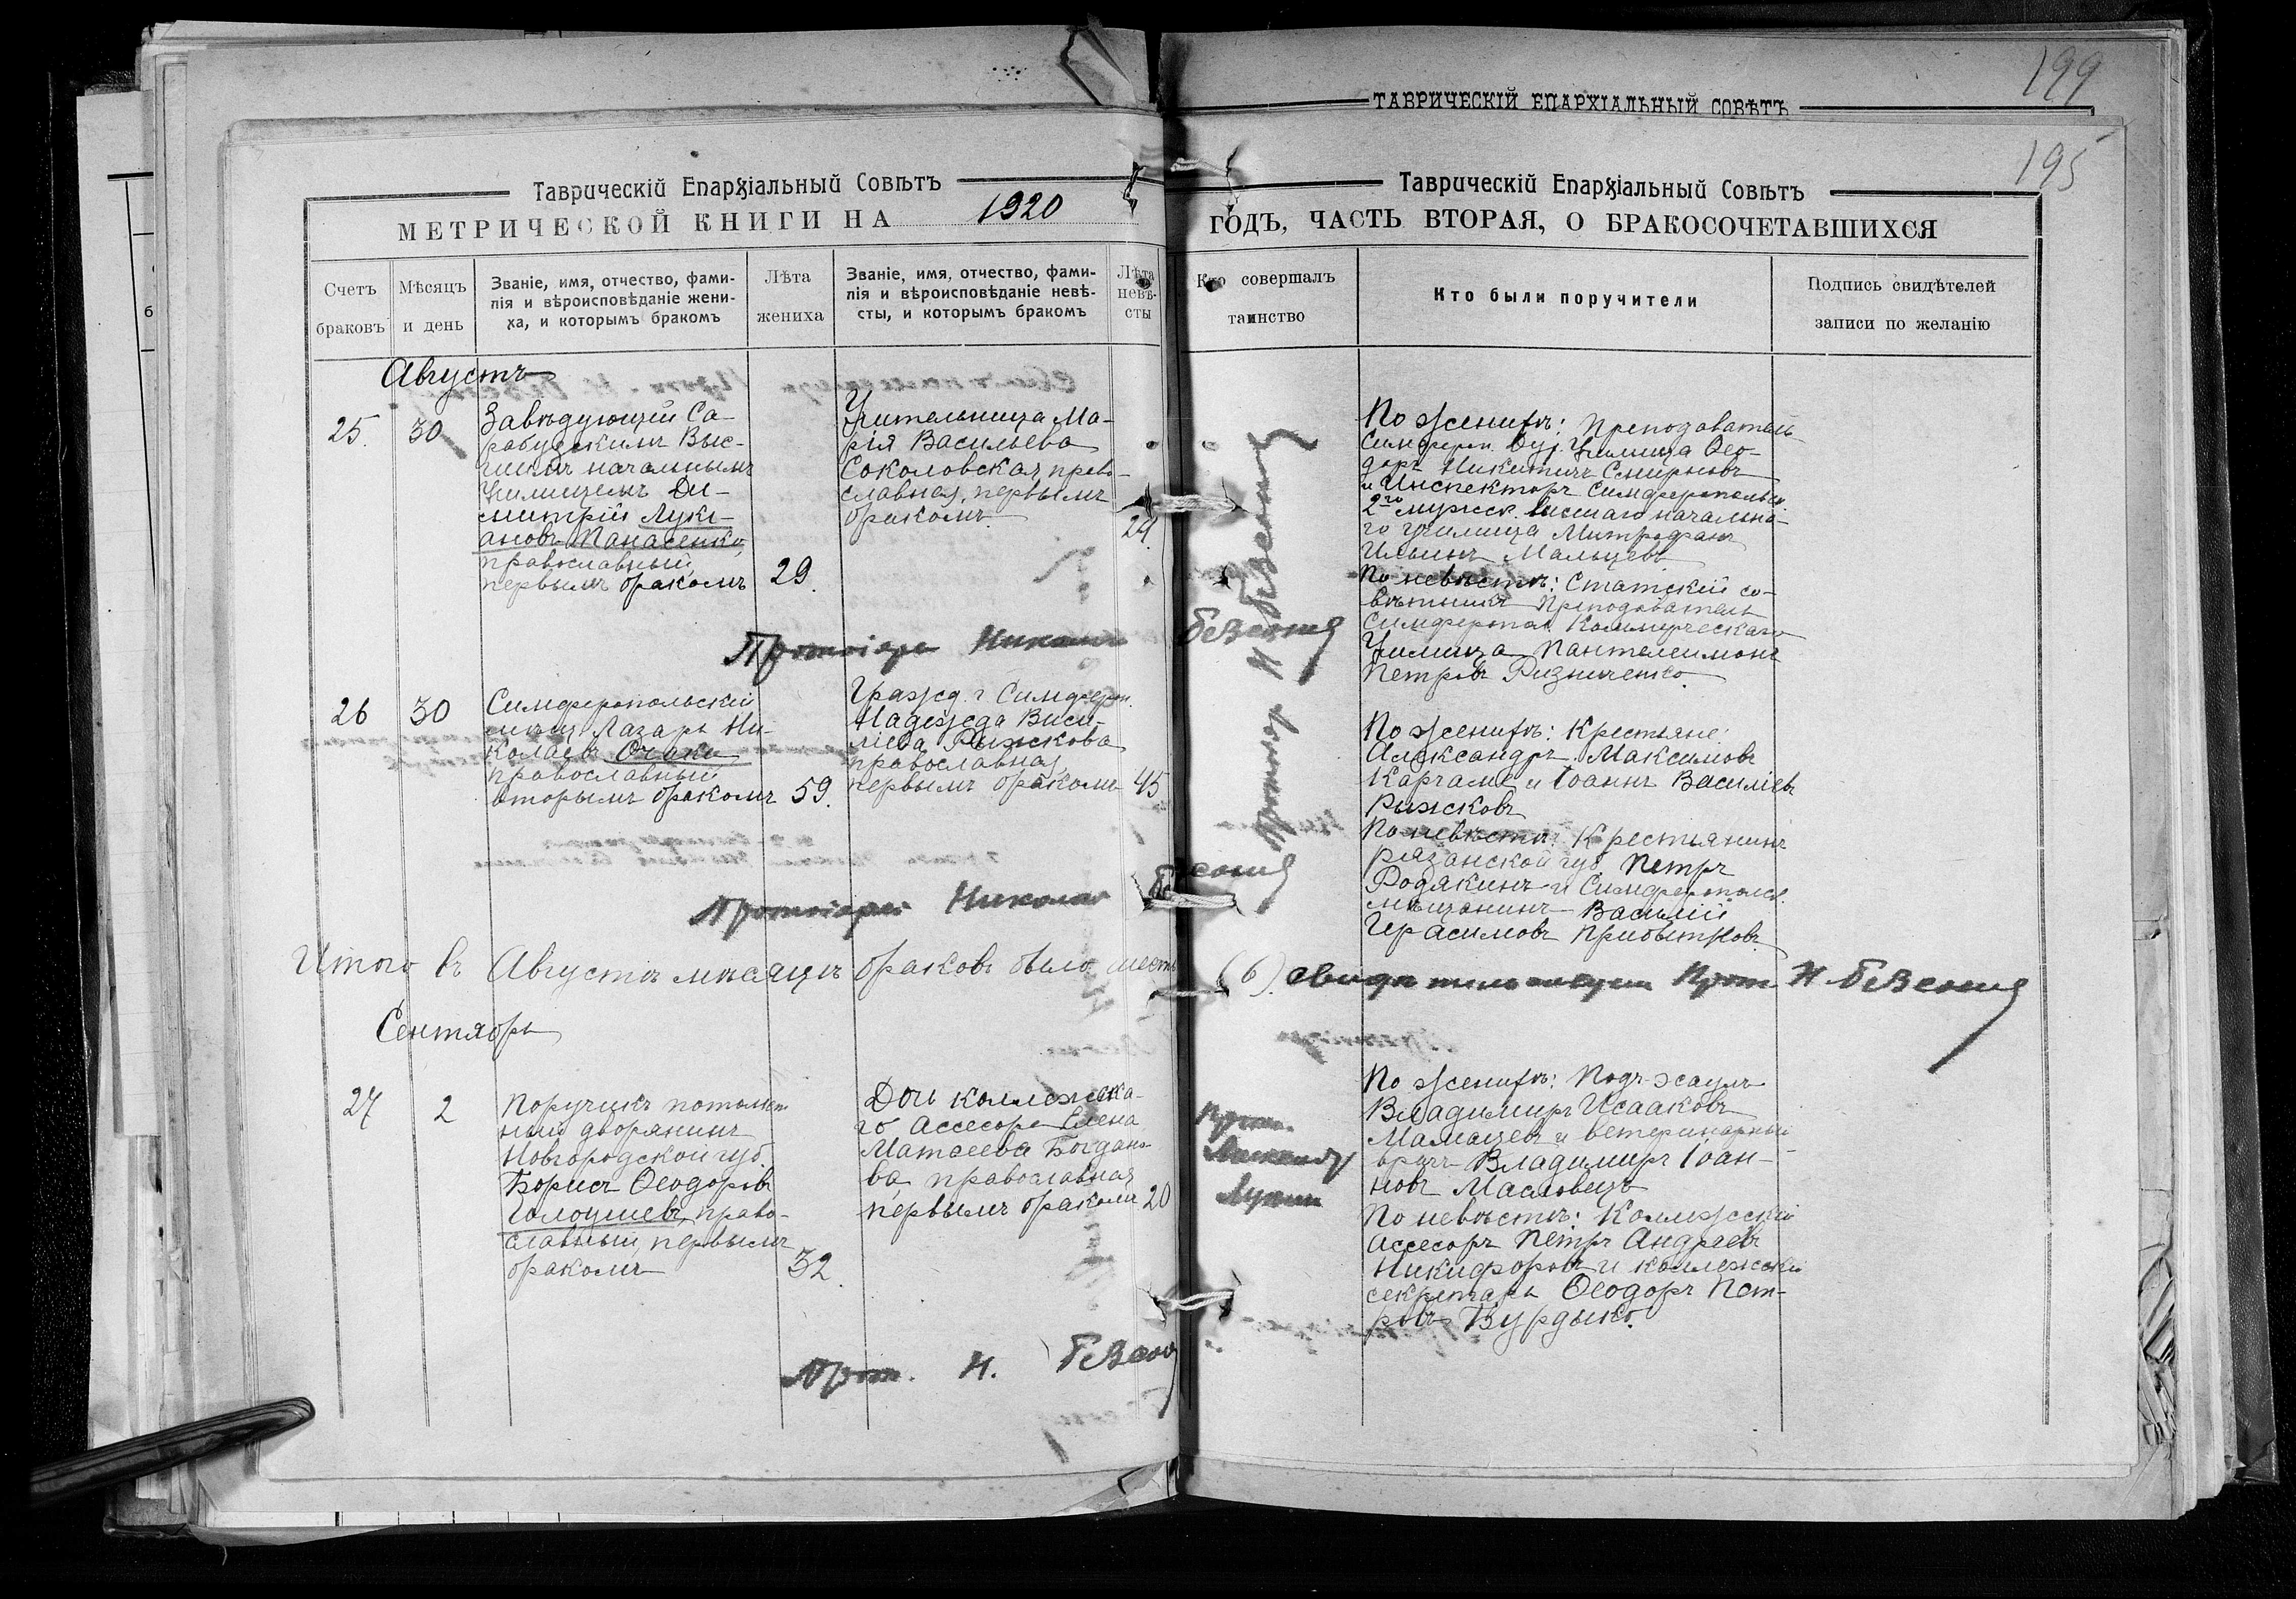 199
ТАВРИЧЕСКІЙ ЕПАРХІАЛЬНЫЙ СОВѢТЪ
195
Таврическій Епархіальный Совѣтъ
МЕТРИЧЕСКОЙ КНИГИ НА 1920
Таврическій Епархіальный Совѣтъ
ГОДЪ, ЧАСТЬ ВТОРАЯ, О БРАКОСОЧЕТАВШИХСЯ
Счетъ
браковъ
Мѣсяцъ
и день
Званіе, имя, отчество, фами-
лія и вѣроисповѣданіе жени-
ха, и которымъ бракомъ
Лѣта
жениха
Званіе, имя, отчество, фами-
лія и вѣроисповѣданіе невѣ-
сты, и которымъ бракомъ
Лѣта
невѣ-
сты
Кто совершалъ
таинство
Кто были поручители
Подпись свидѣтелей
записи по желанію
Августъ
25.
30
Завѣдующій Са-
рабузскимъ Выс-
шимъ начальнымъ
Училищемъ Ди-
митрій Луки-
ановъ Панасенко,
православный,
первымъ бракомъ
29.
Учительница Ма-
рія Васильева
Соколовская, право-
славная, первымъ
бракомъ.
29.
Протоіерей Н Безсоновъ
По женихѣ: Преподаватель
Симфероп. Дух. Училища Ѳео-
доръ Никитичъ Смирновъ
и Инспекторъ Симферопольск.
2го мужск. высшаго начально-
го училища Митрофанъ
Ильинъ Мальцевъ
По невѣстѣ: Статскій со-
вѣтникъ Преподаватель
Симфероп. Коммерческаго
Училища Пантелеимонъ
Петровъ Ризниченко.
Протоіерей Николай Безсоновъ
26
30
Симферопольскій
мѣщ. Лазарь Ни-
колаевъ
православный
вторымъ бракомъ
59.
Гражд. г Симфероп.
Надежда Васи-
ліева Рыжкова
православная,
первымъ бракомъ
45
По женихѣ: Крестьяне:
Александръ Максимовъ
и Іоаннъ Василіевъ
Рыжковъ
По невѣстѣ: Крестьянинъ
Рязанской губ. Петръ
Родякинъ и Симферопольск.
мѣщанинъ Василій
Герасимовъ Прибытковъ.
Протоіерей Николай Безсоновъ
Итого въ Августѣ мѣсяцѣ браковъ было шесть (6). свидѣтельствуетъ Прот. Н. Безсоновъ
Сентябрь
27
2
Поручикъ потомст.
ный дворянинъ
Новгородской губ.
Борисъ Ѳеодоровъ
Голоушевъ, право-
славный, первымъ
бракомъ
32.
Дочь коллежска-
го Ассесора Елена
Матѳеева Богдано-
ва, православная
первымъ бракомъ
20
Прот.
По женихѣ: Подъ-эсаулъ
Владимиръ Исааковъ
Мамацевъ и ветеринарный
врачъ Владимиръ Іоан-
новъ Масловецъ
По невѣстѣ: Коллежскій
Ассесоръ Петръ Андреевъ
Никифоровъ и коллежскій
секретарь Ѳеодоръ Пет-
ровъ Бурдыко.
Прот. Н. Безсоновъ